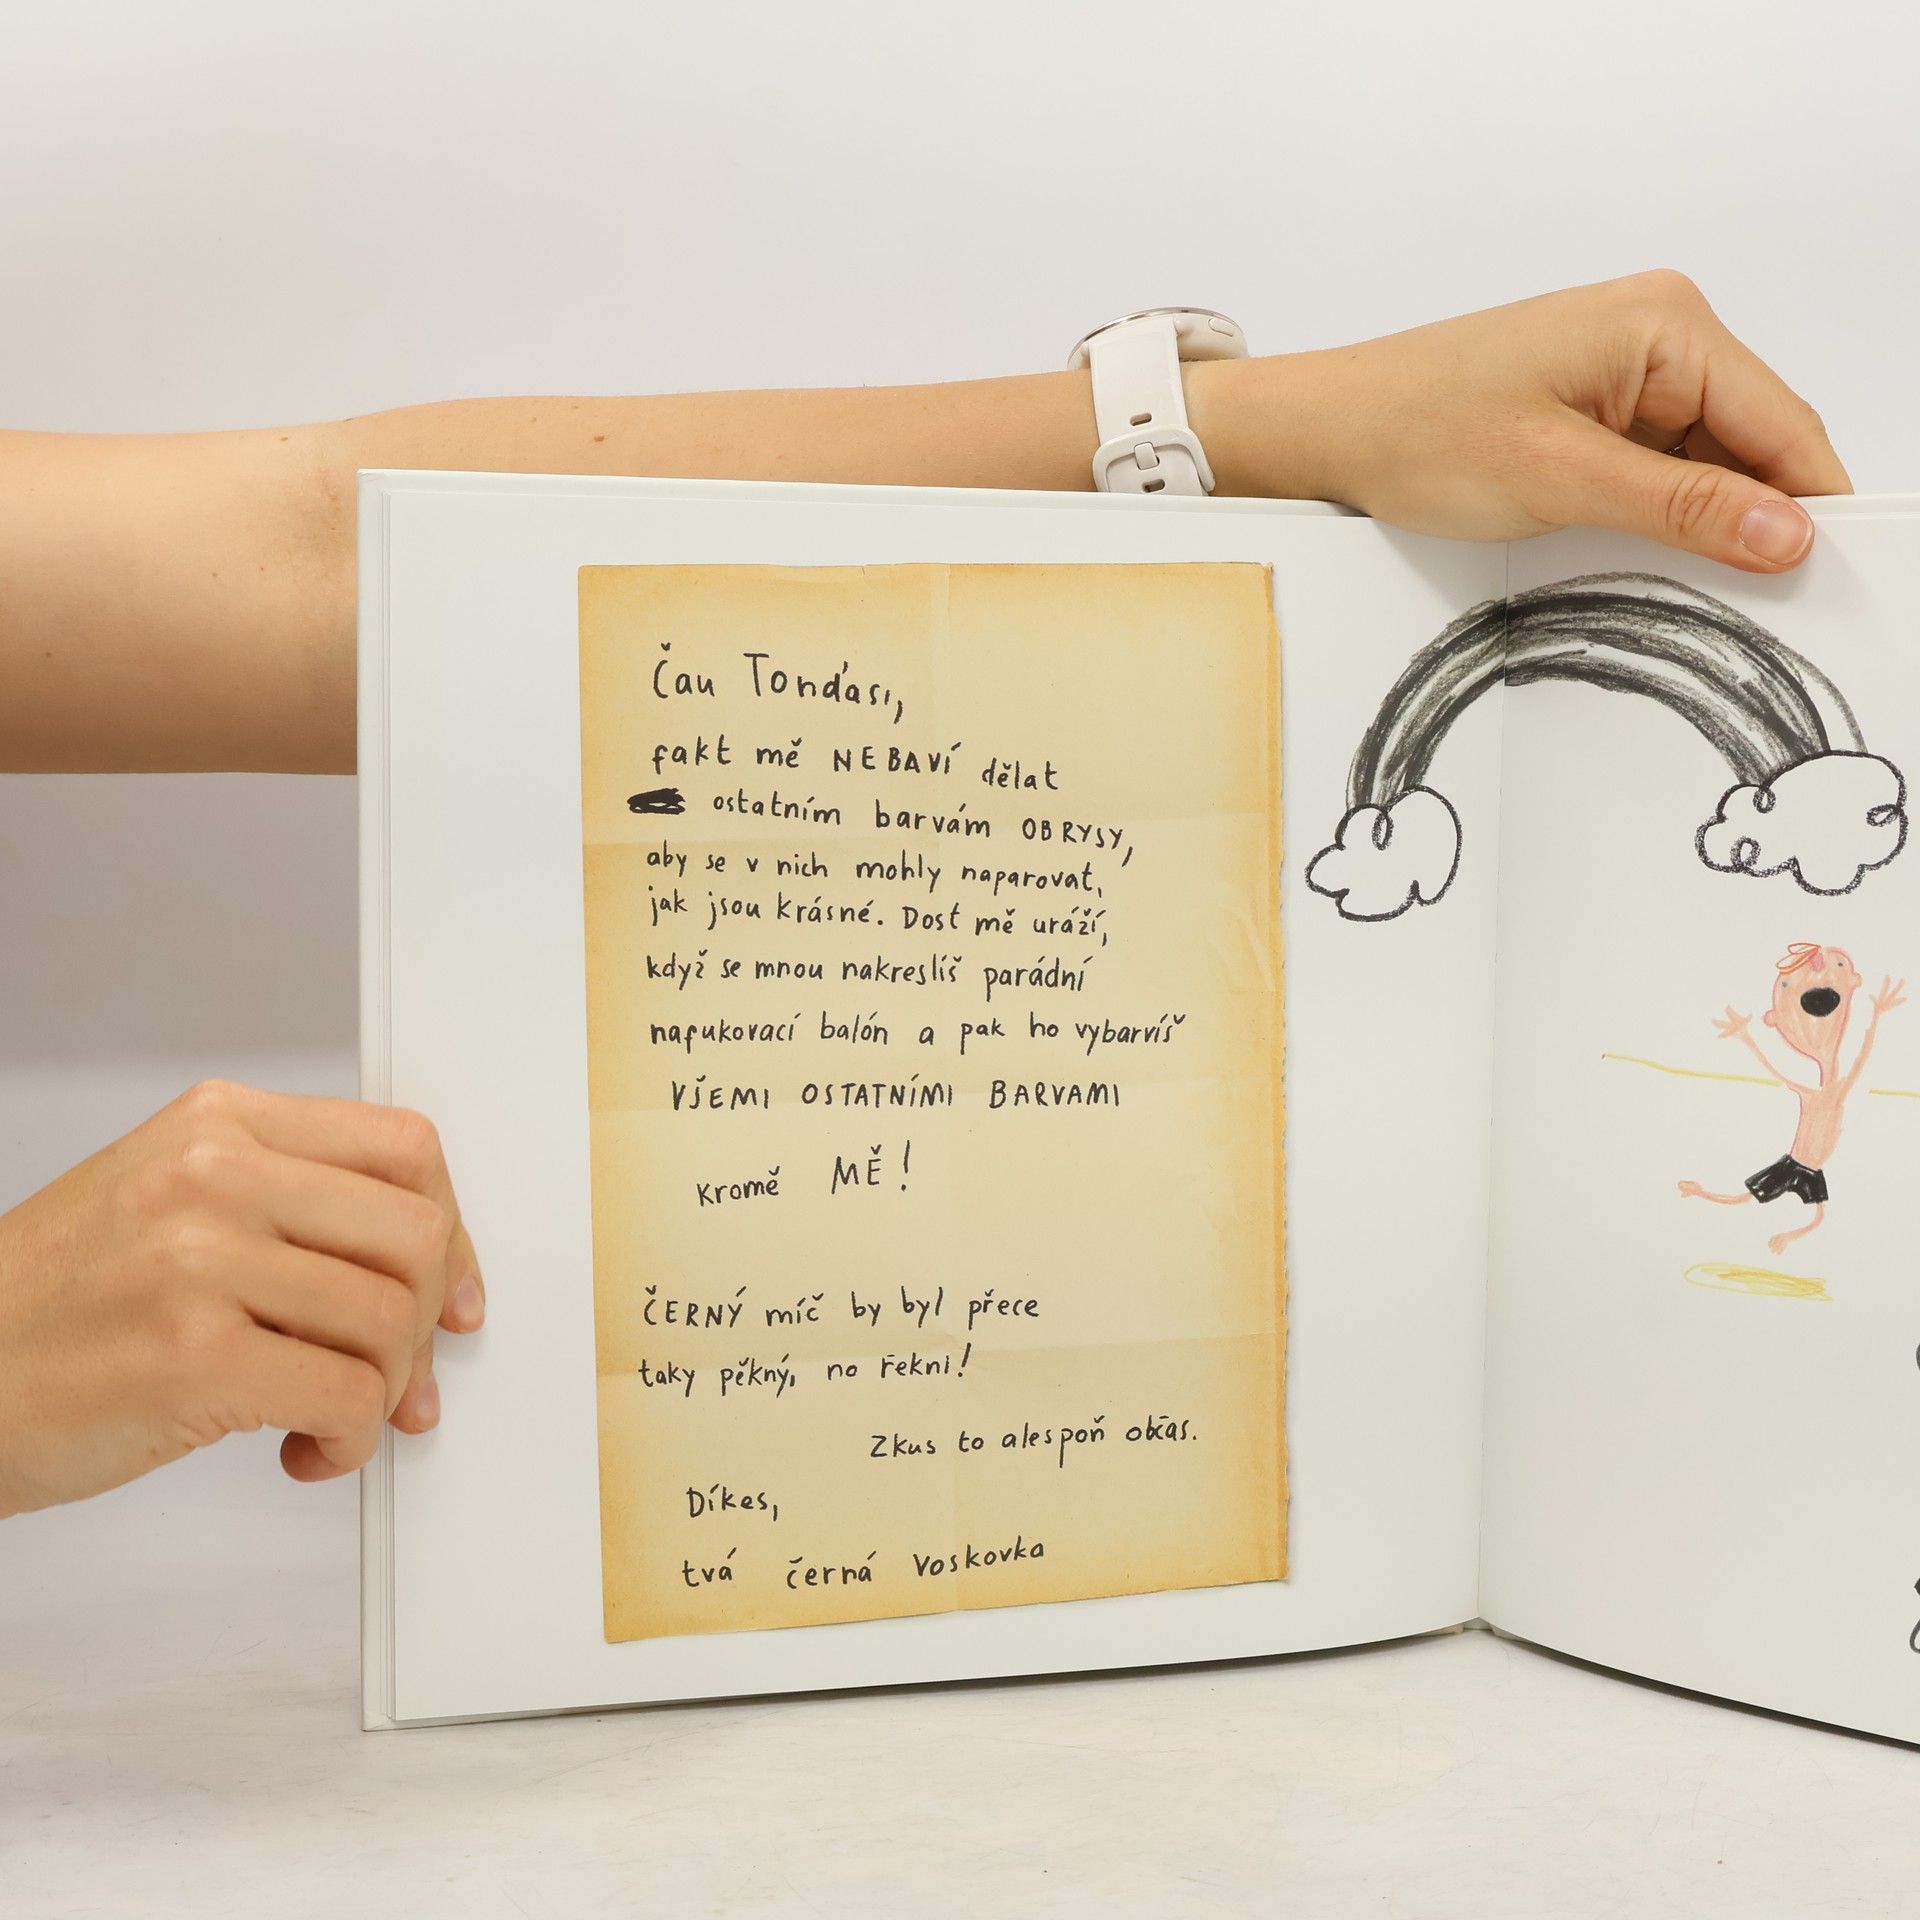 Čau Tonďasi,
fakt mě NEBAVÍ dělat
ostatním barvám OBRYSY,
aby se v nich mohly naparovat,
jak jsou krásné. Dost mě uráží,
když se mnou nakreslíš parádní
nafukovací balón a pak ho vybarvíš
VŠEMI OSTATNÍMI BARVAMI
kromě MĚ!
ČERNÝ míč by byl přece
taky pěkný, no řekni!
Zkus to alespoň občas.
Díkes,
tvá černá Voskovka